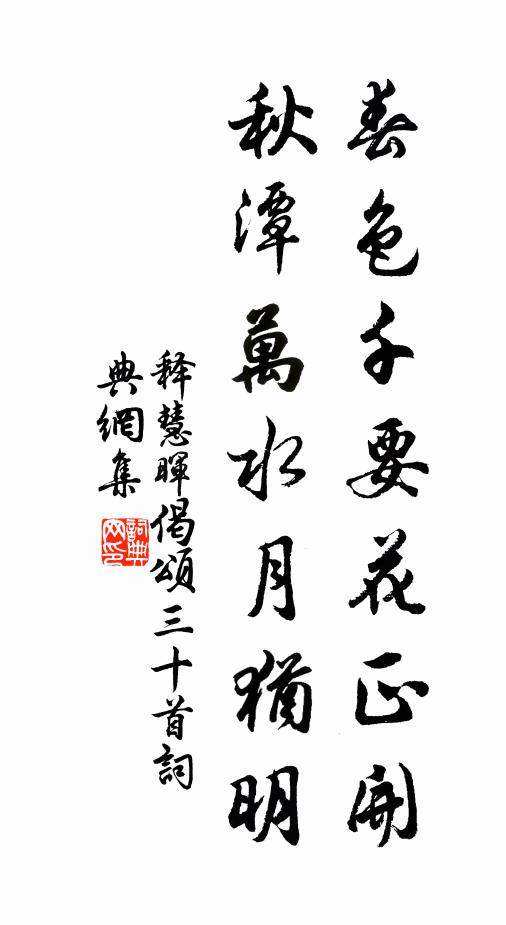 春色千要花正開
秋潭萬水月猶明
释慧暉偈頌三十首詞
典網集
詞典网印